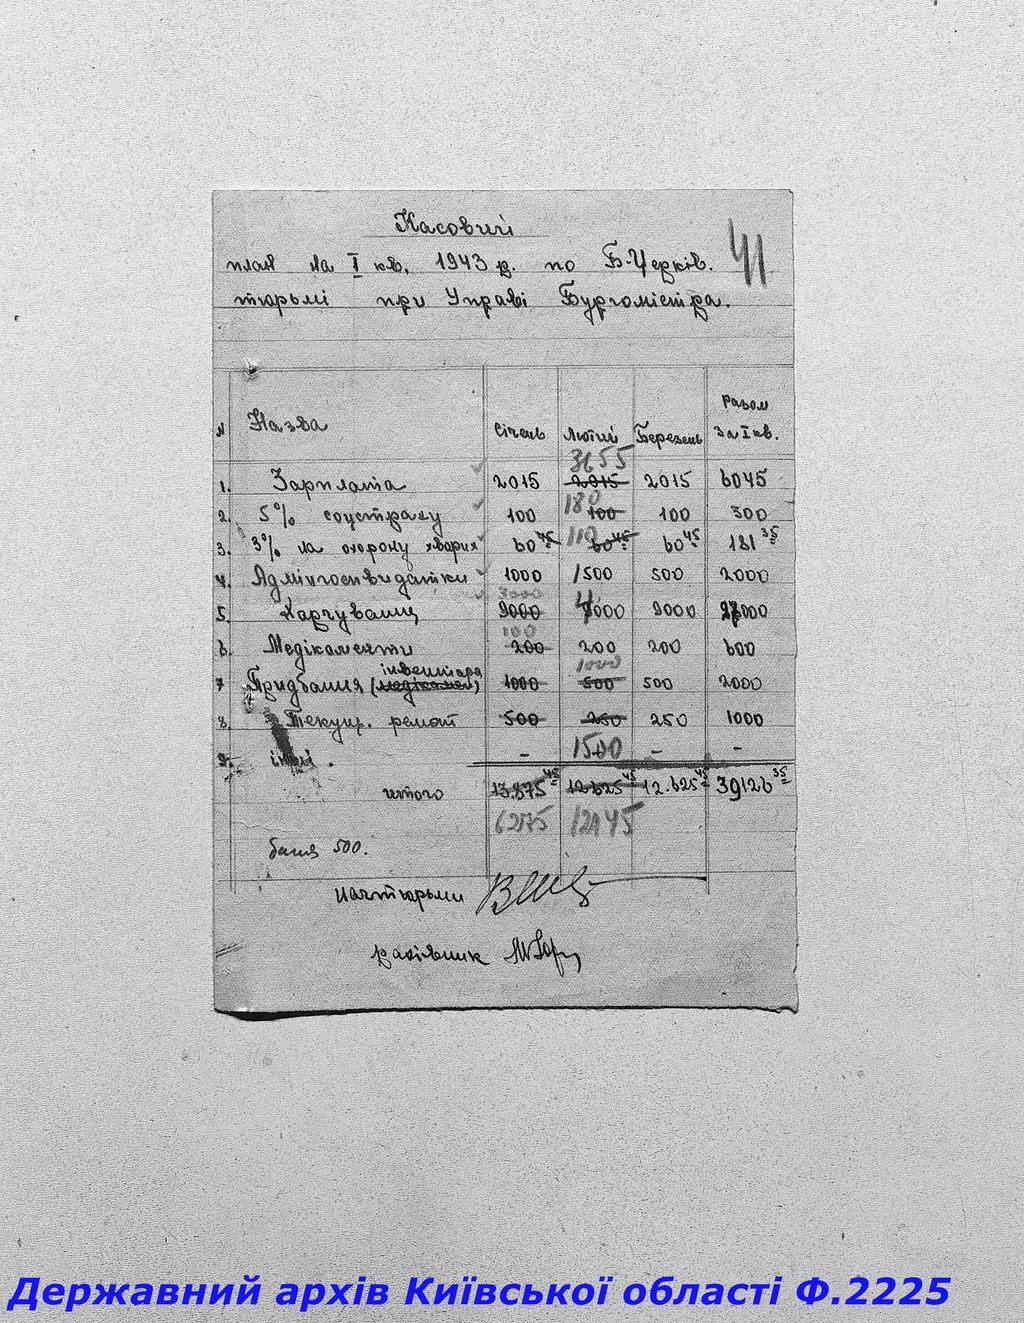 Касовий
41
план на I кв. 1943 р. по Б.Церків.
тюрьмі при Управі Бургомістра.
N Назва Січень Лютий Березень Разом за I кв.
3655
1. Зарплата 2015 2015 2015 6045
180
2. 5% соцстраху 100 100 100 300
110
3. 3% на охорону хворих 60 45 60 45 60 45 181 35
4. Адмінгоспвидатки 1000 1500 500 2000
3000 4
5. Харчування 9000 9000 9000 27000
100
6. Медікаменти 200 200 200 600
інвентаря 1000
7 Придбання (медікамен) 1000 500 500 2000
8. Текущ. ремонт 500 250 250 1000
9. інші. - 1500 - -
итого 13.875 45 12.625 45 12.625 45 39126 35
62175 12145
баня 500.
Начтюрьми
рахівник
Державний архів Київської області Ф.2225